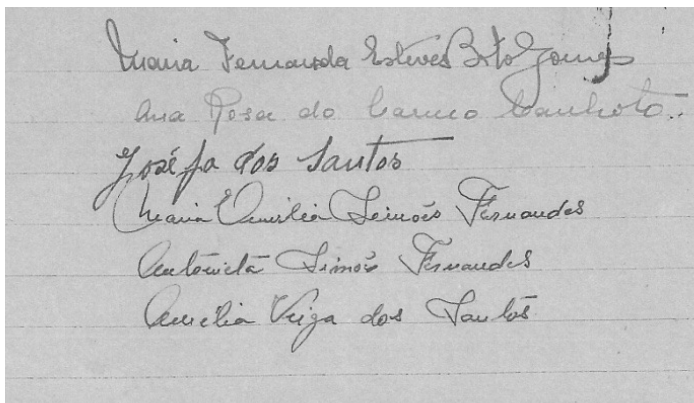 Maria Fernanda Esteves Brito Gomes
Ana Rosa do Carmo Canhoto
Joséfa dos Santos
Maria Emilia Simões Fernandes
Antónieta Simões Fernandes
Amélia Veiga dos Santos